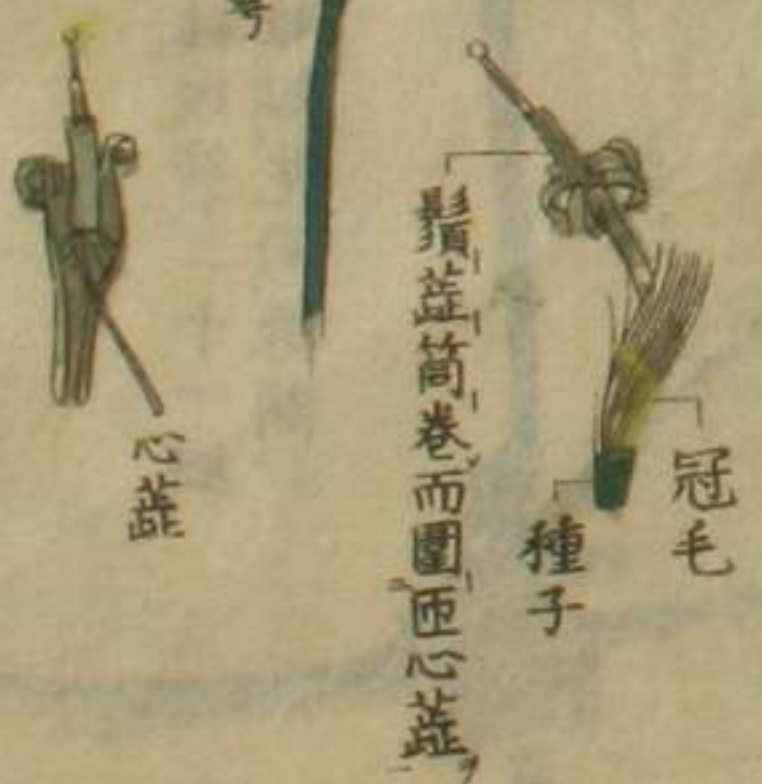 冠毛
種子
鬚蕋筒卷而圍匝心蕋
心蕋